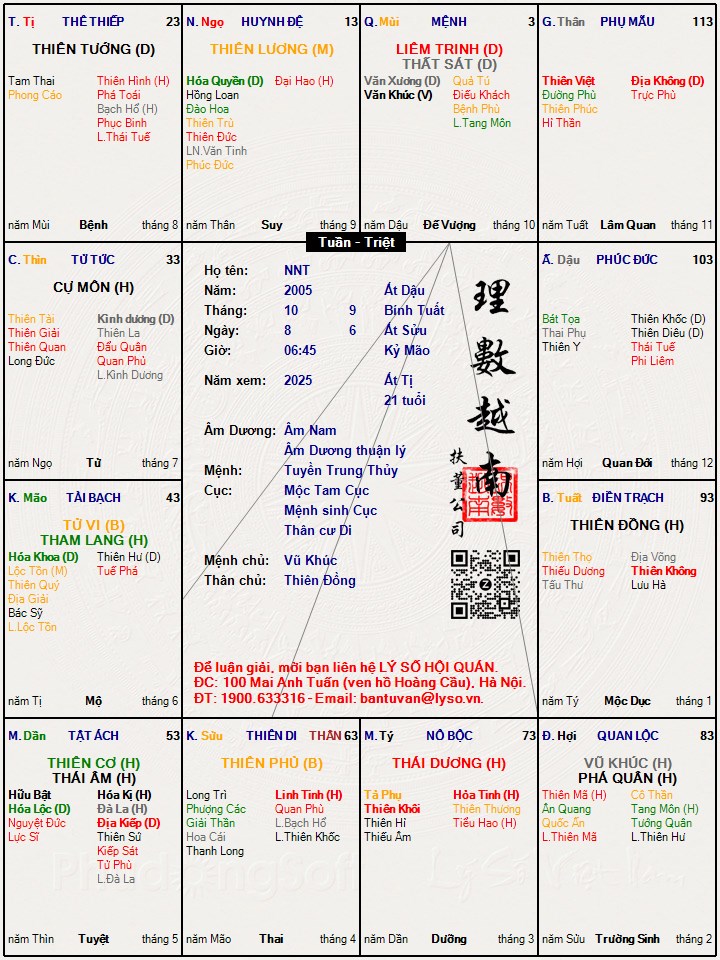 T. Tị THÊ THIẾP 23
THIÊN TƯỚNG (D)
Tam Thai
Phong Cáo
Thiên Hình (H)
Phá Toái
Bạch Hổ (H)
Phục Binh
L.Thái Tuế
năm Mùi Bệnh tháng 8
N. Ngọ HUYNH ĐỆ 13
THIÊN LƯƠNG (M)
Hóa Quyền (D)
Hồng Loan
Đào Hoa
Thiên Trù
Thiên Đức
LN.Văn Tinh
Phúc Đức
Đại Hao (H)
năm Thân Suy tháng 9
Q. Mùi MỆNH 3
LIÊM TRINH (D)
THẤT SÁT (D)
Văn Xương (D)
Văn Khúc (V)
Quả Tú
Điếu Khách
Bệnh Phù
L.Tang Môn
năm Dậu Đế Vượng tháng 10
G. Thân PHỤ MẪU 113
Thiên Việt
Đường Phù
Thiên Phúc
Hỉ Thần
Địa Không (D)
Trực Phù
năm Tuất Lâm Quan tháng 11
Tuần - Triệt
C. Thìn TỬ TỨC 33
CỰ MÔN (H)
Thiên Tài
Thiên Giải
Thiên Quan
Long Đức
Kình dương (D)
Thiên La
Đẩu Quân
Quan Phủ
L.Kình Dương
năm Ngọ Tử tháng 7
Họ tên: NNT
Năm: 2005 Ất Dậu
Tháng: 10 9 Bính Tuất
Ngày: 8 6 Ất Sửu
Giờ: 06:45 Kỷ Mão
Năm xem: 2025 Ất Tị
21 tuổi
Âm Dương: Âm Nam
Âm Dương thuận lý
Mệnh: Tuyền Trung Thủy
Cục: Mộc Tam Cục
Mệnh sinh Cục
Thân cư Di
Mệnh chủ: Vũ Khúc
Thân chủ: Thiên Đồng
理數越南
扶董公司
Để luận giải, mời bạn liên hệ LÝ SỐ HỘI QUÁN.
ĐC: 100 Mai Anh Tuấn (ven hồ Hoàng Cầu), Hà Nội.
ĐT: 1900.633316 - Email: bantuvan@lyso.vn.
Ấ. Dậu PHÚC ĐỨC 103
Bát Tọa
Thai Phụ
Thiên Y
Thiên Khốc (D)
Thiên Diêu (D)
Thái Tuế
Phi Liêm
năm Hợi Quan Đới tháng 12
K. Mão TÀI BẠCH 43
TỬ VI (B)
THAM LANG (H)
Hóa Khoa (D)
Lộc Tồn (M)
Thiên Quý
Địa Giải
Bác Sỹ
L.Lộc Tồn
Thiên Hư (D)
Tuế Phá
năm Tị Mộ tháng 6
B. Tuất ĐIỀN TRẠCH 93
THIÊN ĐỒNG (H)
Thiên Thọ
Thiếu Dương
Tấu Thư
Địa Võng
Thiên Không
Lưu Hà
năm Tý Mộc Dục tháng 1
M. Dần TẬT ÁCH 53
THIÊN CƠ (H)
THÁI ÂM (H)
Hữu Bật
Hóa Lộc (D)
Nguyệt Đức
Lực Sĩ
Hóa Kị (H)
Đà La (H)
Địa Kiếp (D)
Thiên Sứ
Kiếp Sát
Tử Phù
L.Đà La
năm Thìn Tuyệt tháng 5
K. Sửu THIÊN DI THÂN 63
THIÊN PHỦ (B)
Long Trì
Phượng Các
Giải Thần
Hoa Cái
Thanh Long
Linh Tinh (H)
Quan Phù
L.Bạch Hổ
L.Thiên Khốc
năm Mão Thai tháng 4
M. Tý NÔ BỘC 73
THÁI DƯƠNG (H)
Tả Phụ
Thiên Khôi
Thiên Hỉ
Thiếu Âm
Hỏa Tinh (H)
Thiên Thương
Tiểu Hao (H)
năm Dần Dưỡng tháng 3
Đ. Hợi QUAN LỘC 83
VŨ KHÚC (H)
PHÁ QUÂN (H)
Thiên Mã (H)
Ân Quang
Quốc Ấn
L.Thiên Mã
Cô Thần
Tang Môn (H)
Tướng Quân
L.Thiên Hư
năm Sửu Trường Sinh tháng 2